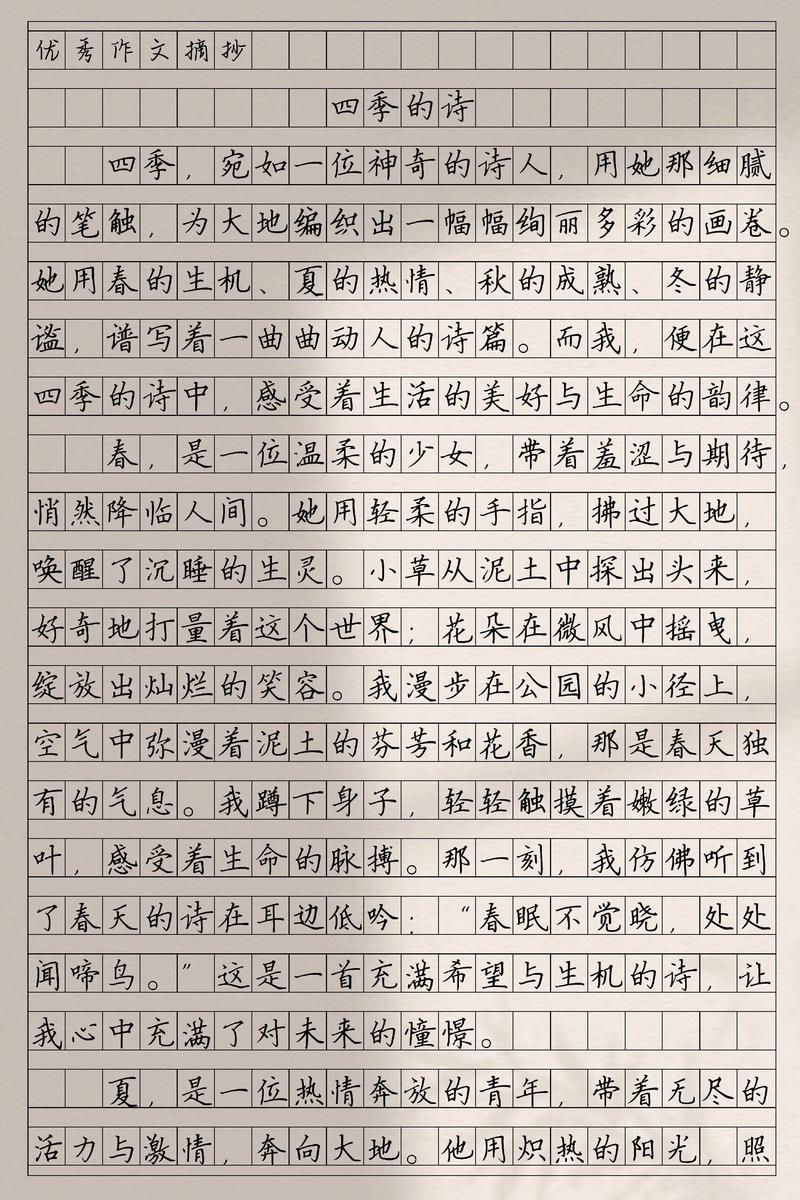 优秀作文摘抄
四季的诗
四季，宛如一位神奇的诗人，用她那细腻
的笔触，为大地编织出一幅幅绚丽多彩的画卷。
她用春的生机、夏的热情、秋的成熟、冬的静
谧，谱写着一曲曲动人的诗篇。而我，便在这
四季的诗中，感受着生活的美好与生命的韵律。
春，是一位温柔的少女，带着羞涩与期待，
悄然降临人间。她用轻柔的手指，拂过大地，
唤醒了沉睡的生灵。小草从泥土中探出头来，
好奇地打量着这个世界；花朵在微风中摇曳，
绽放出灿烂的笑容。我漫步在公园的小径上，
空气中弥漫着泥土的芬芳和花香，那是春天独
有的气息。我蹲下身子，轻轻触摸着嫩绿的草
叶，感受着生命的脉搏。那一刻，我仿佛听到
了春天的诗在耳边低吟：“春眠不觉晓，处处
闻啼鸟。”这是一首充满希望与生机的诗，让
我心中充满了对未来的憧憬。
夏，是一位热情奔放的青年，带着无尽的
活力与激情，奔向大地。他用炽热的阳光，照